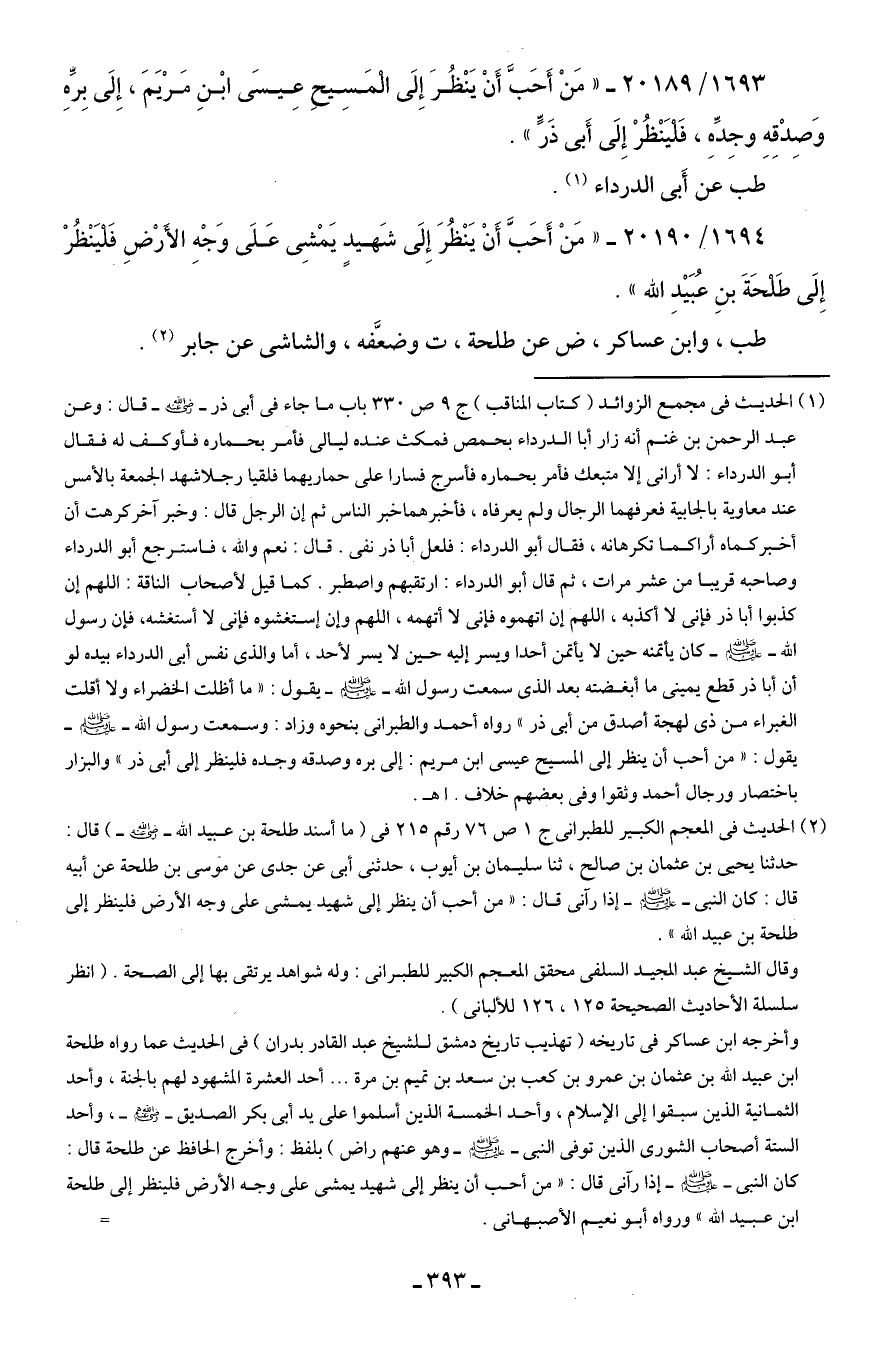 ١٦٩٣/ ٢٠١٨٩ ـ « مَنْ أَحَبَّ أَنْ يَنْظُرَ إِلَى الْمَسِيحِ عِيسَى ابْنِ مَرْيَمَ ، إِلَى بِرِّهِ
وَصِدْقِهِ وجِدِّهِ ، فَلْيَنْظُرْ إِلَى أَبى ذَرٍّ » .
طب عن أَبى الدرداء (١) .
١٦٩٤/ ٢٠١٩٠ ـ « مَنْ أَحَبَّ أَنْ يَنْظُرَ إِلَى شَهِيدٍ يَمْشِى عَلَى وَجْهِ الأَرْضِ فَلْيَنْظُرْ
إِلَى طَلْحَةَ بنِ عُبَيْدِ الله » .
طب ، وابن عساكر ، ض عن طلحة ، ت وضعَّفه ، والشاشى عن جابر (٢) .
(١) الحديث فى مجمع الزوائد ( كتاب المناقب ) ج ٩ ص ٣٣٠ باب ما جاء فى أبى ذر ـ رضي الله عنه ـ قال : وعن
عبد الرحمن بن غنم أنه زار أبا الدرداء بحمص فمكث عنده ليالى فأمر بحماره فأوكف له فقال
أبو الدرداء : لا أرانى إلا متبعك فأمر بحماره فأسرج فسارا على حماريهما فلقيا رجلا شهد الجمعة بالأمس
عند معاوية بالجابية فعرفهما الرجال ولم يعرفاه ، فأخبرهما خبر الناس ثم إن الرجل قال : وخبر آخر كرهت أن
أخبركماه أراكما تكرهانه ، فقال أبو الدرداء : فلعل أبا ذر نفى . قال : نعم والله ، فاسترجع أبو الدرداء
وصاحبه قريبا من عشر مرات ، ثم قال أبو الدرداء : ارتقبهم واصطبر . كما قيل لأصحاب الناقة : اللهم إن
كذبوا أبا ذر فإنى لا أكذبه ، اللهم إن اتهموه فإنى لا أتهمه ، اللهم وإن إستغشوه فإنى لا أستغشه، فإن رسول
الله ـ ﷺ ـ كان يأتمنه حين لا يأتمن أحدا ويسر إليه حين لا يسر لأحد ، أما والذى نفس أبى الدرداء بيده لو
أن أبا ذر قطع يمينى ما أبغضته بعد الذى سمعت رسول الله ـ ﷺ ـ يقول : « ما أظلت الخضراء ولا أقلت
الغبراء من ذى لهجة أصدق من أبى ذر » رواه أحمد والطبرانى بنحوه وزاد : وسمعت رسول الله ـ ﷺ ـ
يقول : « من أحب أن ينظر إلى المسيح عيسى ابن مريم : إلى بره وصدقه وجده فلينظر إلى أبى ذر » والبزار
باختصار ورجال أحمد وثقوا وفى بعضهم خلاف . ا هـ .
(٢) الحديث فى المعجم الكبير للطبرانى ج ١ ص ٧٦ رقم ٢١٥ فى ( ما أسند طلحة بن عبيد الله ـ رضي الله عنه ـ ) قال :
حدثنا يحيى بن عثمان بن صالح ، ثنا سليمان بن أيوب ، حدثنى أبى عن جدى عن موسى بن طلحة عن أبيه
قال : كان النبى ـ ﷺ ـ إذا رآنى قال : « من أحب أن ينظر إلى شهيد يمشى على وجه الأرض فلينظر إلى
طلحة بن عبيد الله » .
وقال الشيخ عبد المجيد السلفى محقق المعجم الكبير للطبرانى : وله شواهد يرتقى بها إلى الصحة . ( انظر
سلسلة الأحاديث الصحيحة ١٢٥ ، ١٢٦ للألبانى ) .
وأخرجه ابن عساكر فى تاريخه ( تهذيب تاريخ دمشق للشيخ عبد القادر بدران ) فى الحديث عما رواه طلحة
ابن عبيد الله بن عثمان بن عمرو بن كعب بن سعد بن تميم بن مرة ... أحد العشرة المشهود لهم بالجنة ، وأحد
الثمانية الذين سبقوا إلى الإسلام ، وأحد الخمسة الذين أسلموا على يد أبى بكر الصديق ـ رضي الله عنه ـ ، وأحد
الستة أصحاب الشورى الذين توفى النبى ـ ﷺ ـ وهو عنهم راض ) بلفظ : وأخرج الحافظ عن طلحة قال :
كان النبى ـ ﷺ ـ إذا رآنى قال : « من أحب أن ينظر إلى شهيد يمشى على وجه الأرض فلينظر إلى طلحة
ابن عبيد الله » ورواه أبو نعيم الأصبهانى . =
ـ ٣٩٣ ـ